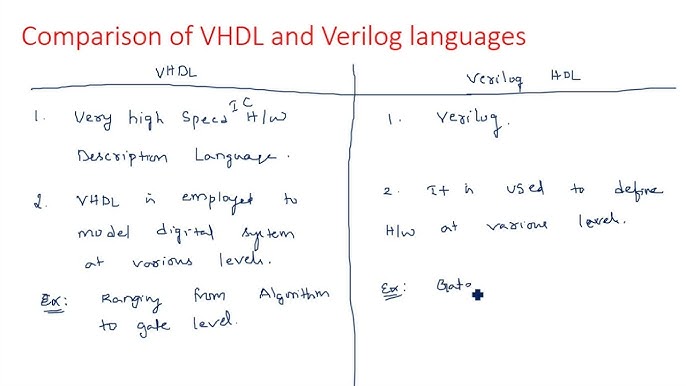 Comparison of VHDL and Verilog languages
VHDL
Verilog HDL
1. Very high Speed IC H/W
Description Language.
2. VHDL is employed to
model digital system
at various levels.
Ex: Ranging from Algorithm
to gate level.
1. Verilog.
2. It is used to define
H/W at various levels.
Ex: Gate